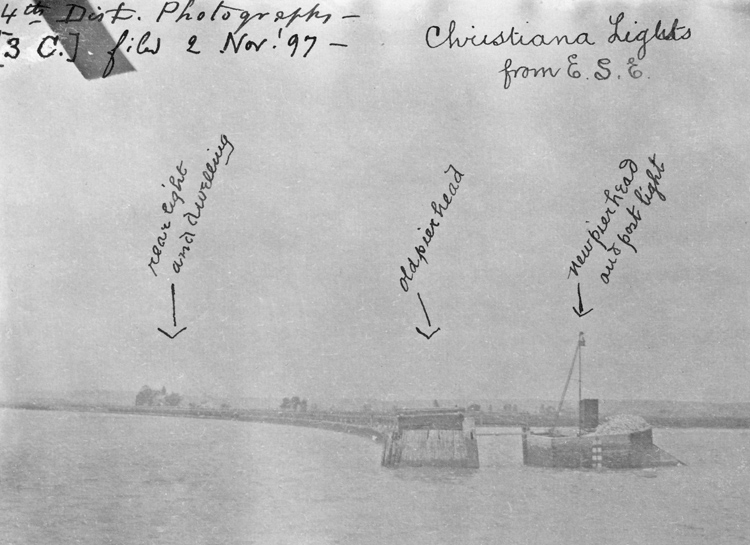 4th Dist. Photographs –
[3 C.] filed 2 Nov. '97 –
Christiana Lights
from E. S. E.
rear light
and dwelling
old pier head
new pier head
and post light